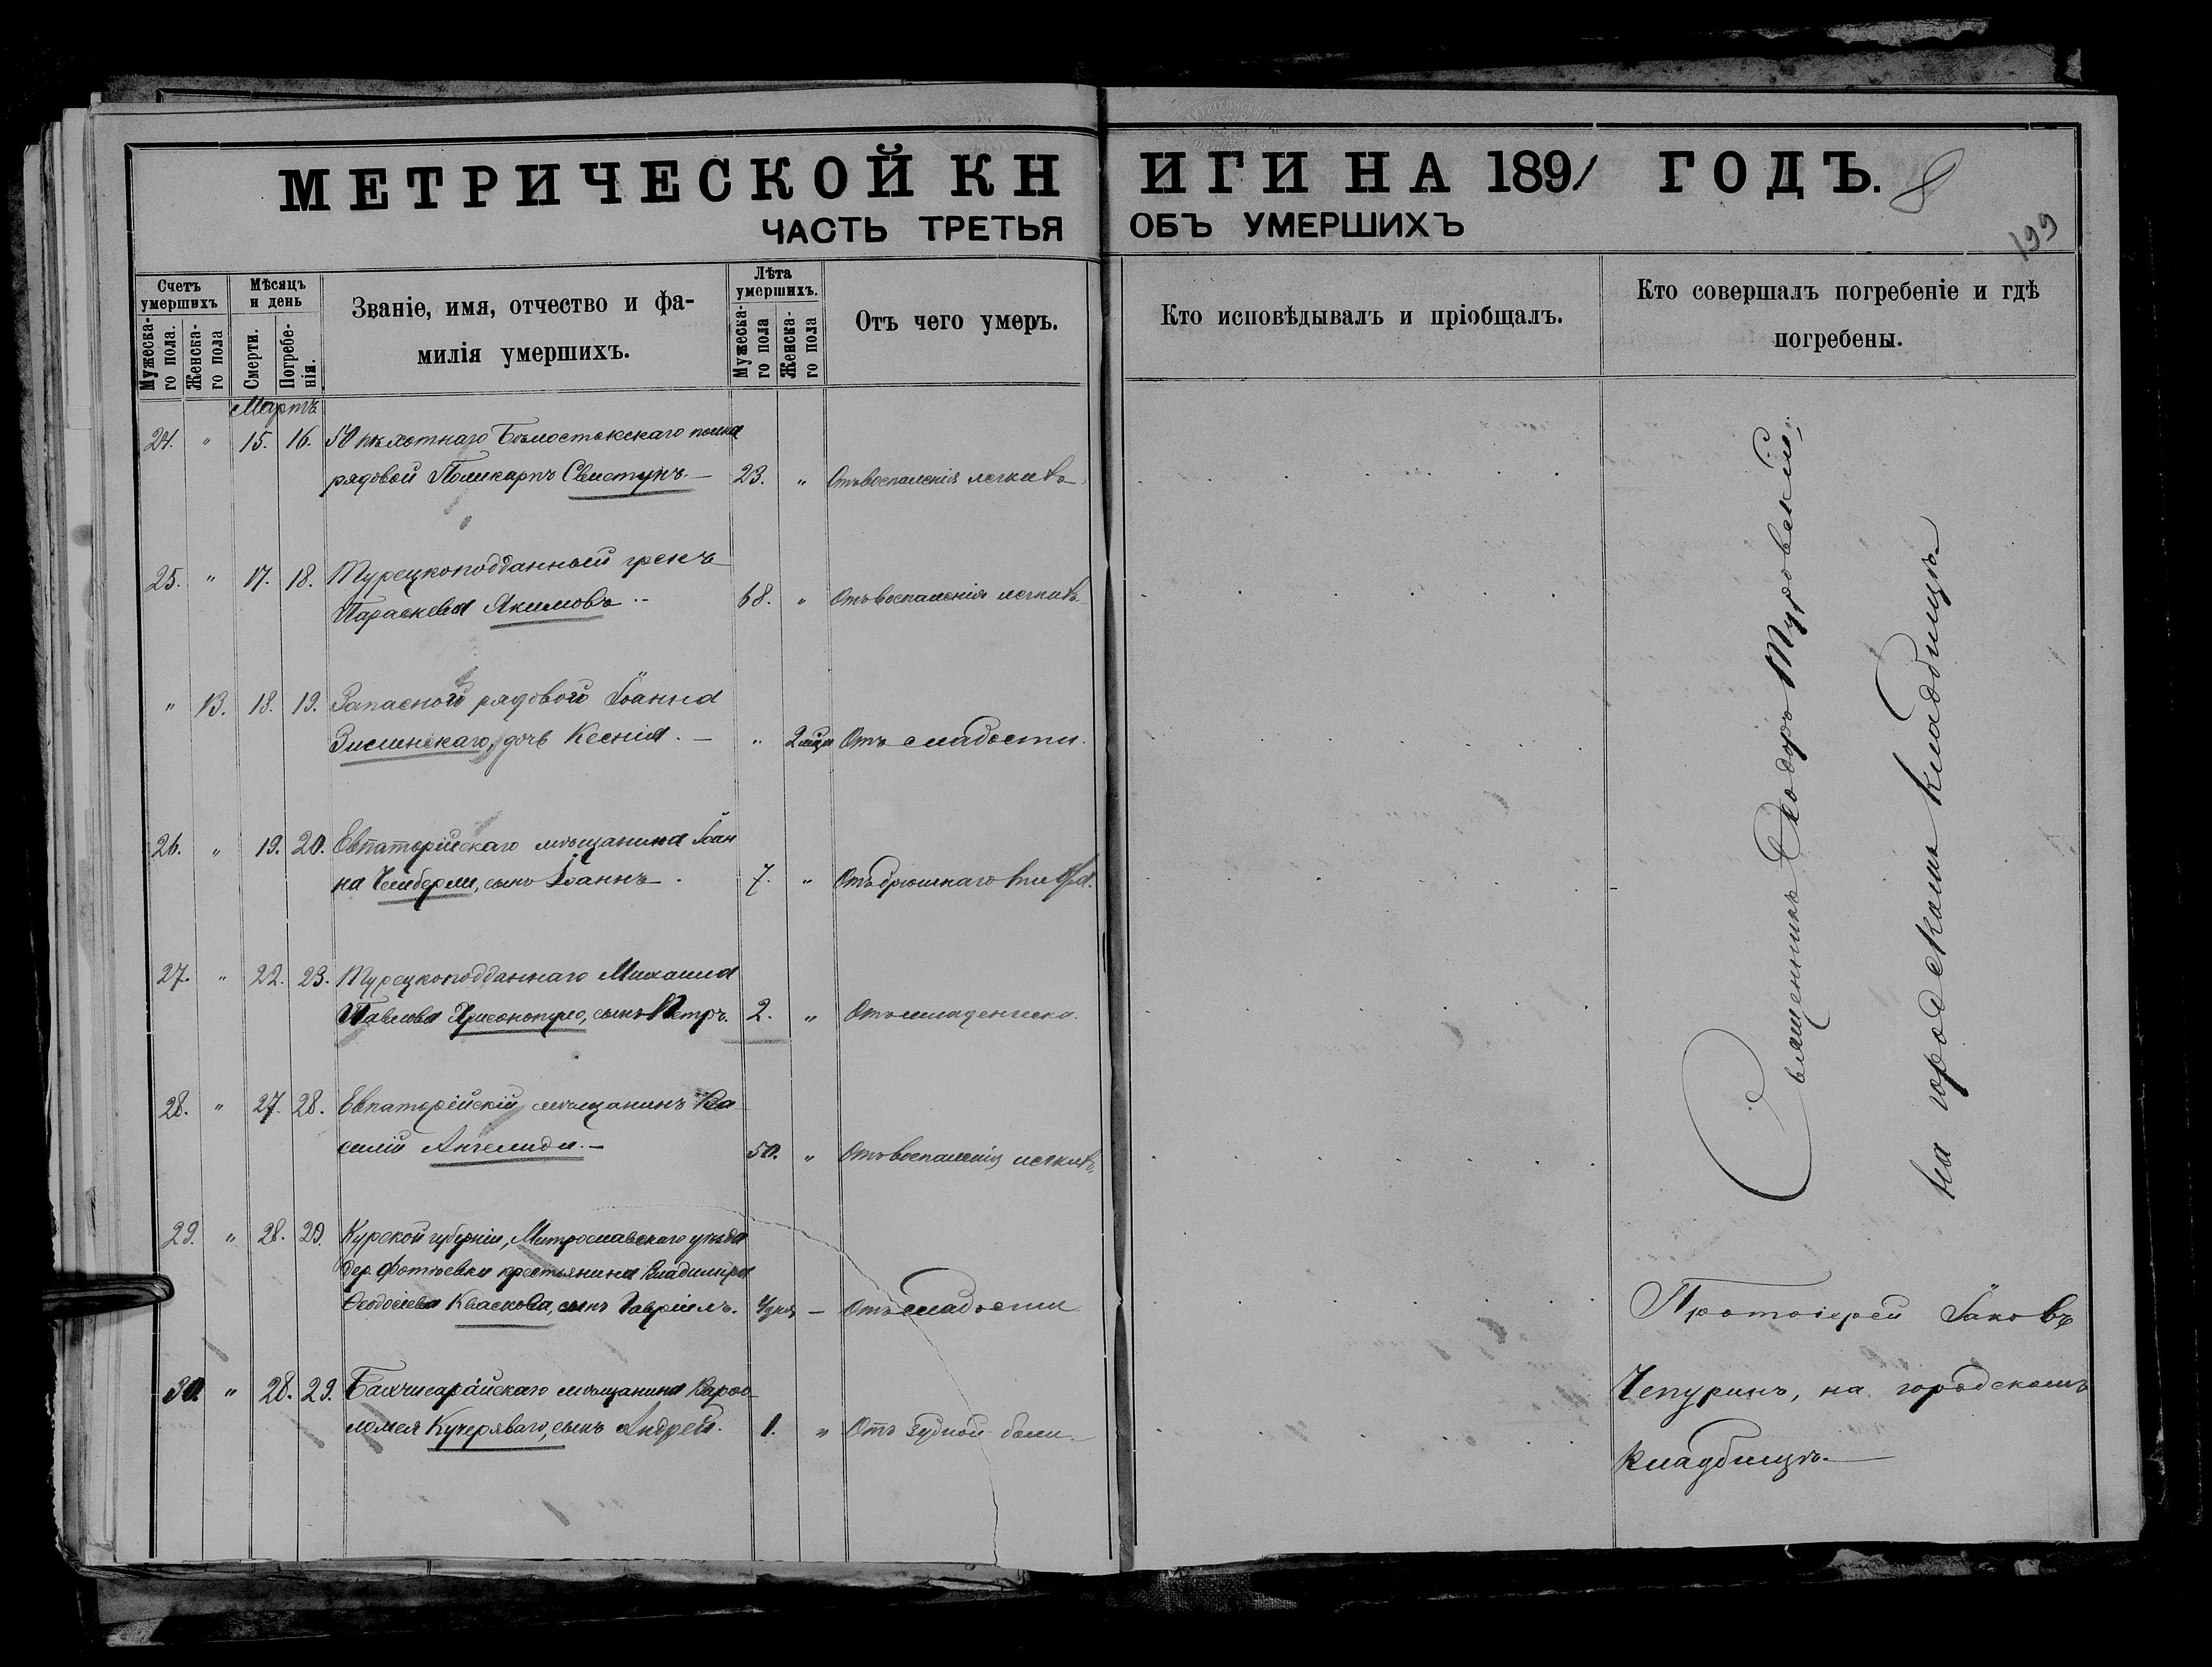 МЕТРИЧЕСКОЙ КНИГИ НА 1891 ГОДЪ.
8
ЧАСТЬ ТРЕТЬЯ ОБЪ УМЕРШИХЪ
199
Счетъ умершихъ
Мужеска-го пола.
Женска-го пола
Мѣсяцъ и день
Смерти.
Погребе-нія.
Званіе, имя, отчество и фа-
милія умершихъ.
Лѣта умершихъ.
Мужеска-го пола
Женска-го пола
Отъ чего умеръ.
Кто исповѣдывалъ и пріобщалъ.
Кто совершалъ погребеніе и гдѣ
погребены.
Мартъ
24. " 15. 16. 50 пѣхотнаго Бѣлостокскаго полка
рядовой Поликарпъ Свистунъ. — 23. " Отъ воспаленія легкихъ
25. " 17. 18. Турецкоподданный грекъ
Параскева Акимовъ 68. " Отъ воспаленія легкихъ
" 13. 18. 19. Запасного рядового Іоанна
дочь Ксенія. — " 2 мѣс Отъ слабости.
26. " 19. 20. Евпаторійскаго мѣщанина Іоан
на Челберли, сынъ Іоаннъ. 7. " Отъ брюшнаго тифа.
27. " 22. 23. Турецкоподданнаго Михаила
Павлова сынъ Петръ. 2. " Отъ младенческа.
28. " 27. 28. Евпаторійскій мѣщанинъ Ва
силій Ангелиди. — 50. " Отъ воспаленія легкихъ
29. " 28. 29. Курской губерніи, уѣзда
дер. крестьянина Владиміра
Ѳеодосіева Кваскова, сынъ Гавріилъ. — Отъ слабости
30. " 28. 29. Бахчисарайскаго мѣщанина Варѳо
ломея Кучеряваго, сынъ Андрей. 1. " Отъ зубной боли.
Священникъ Ѳеодоръ Туровскій;
на городскомъ кладбищѣ
Протоіерей Іаковъ
Чепуринъ, на городскомъ
кладбищѣ. —